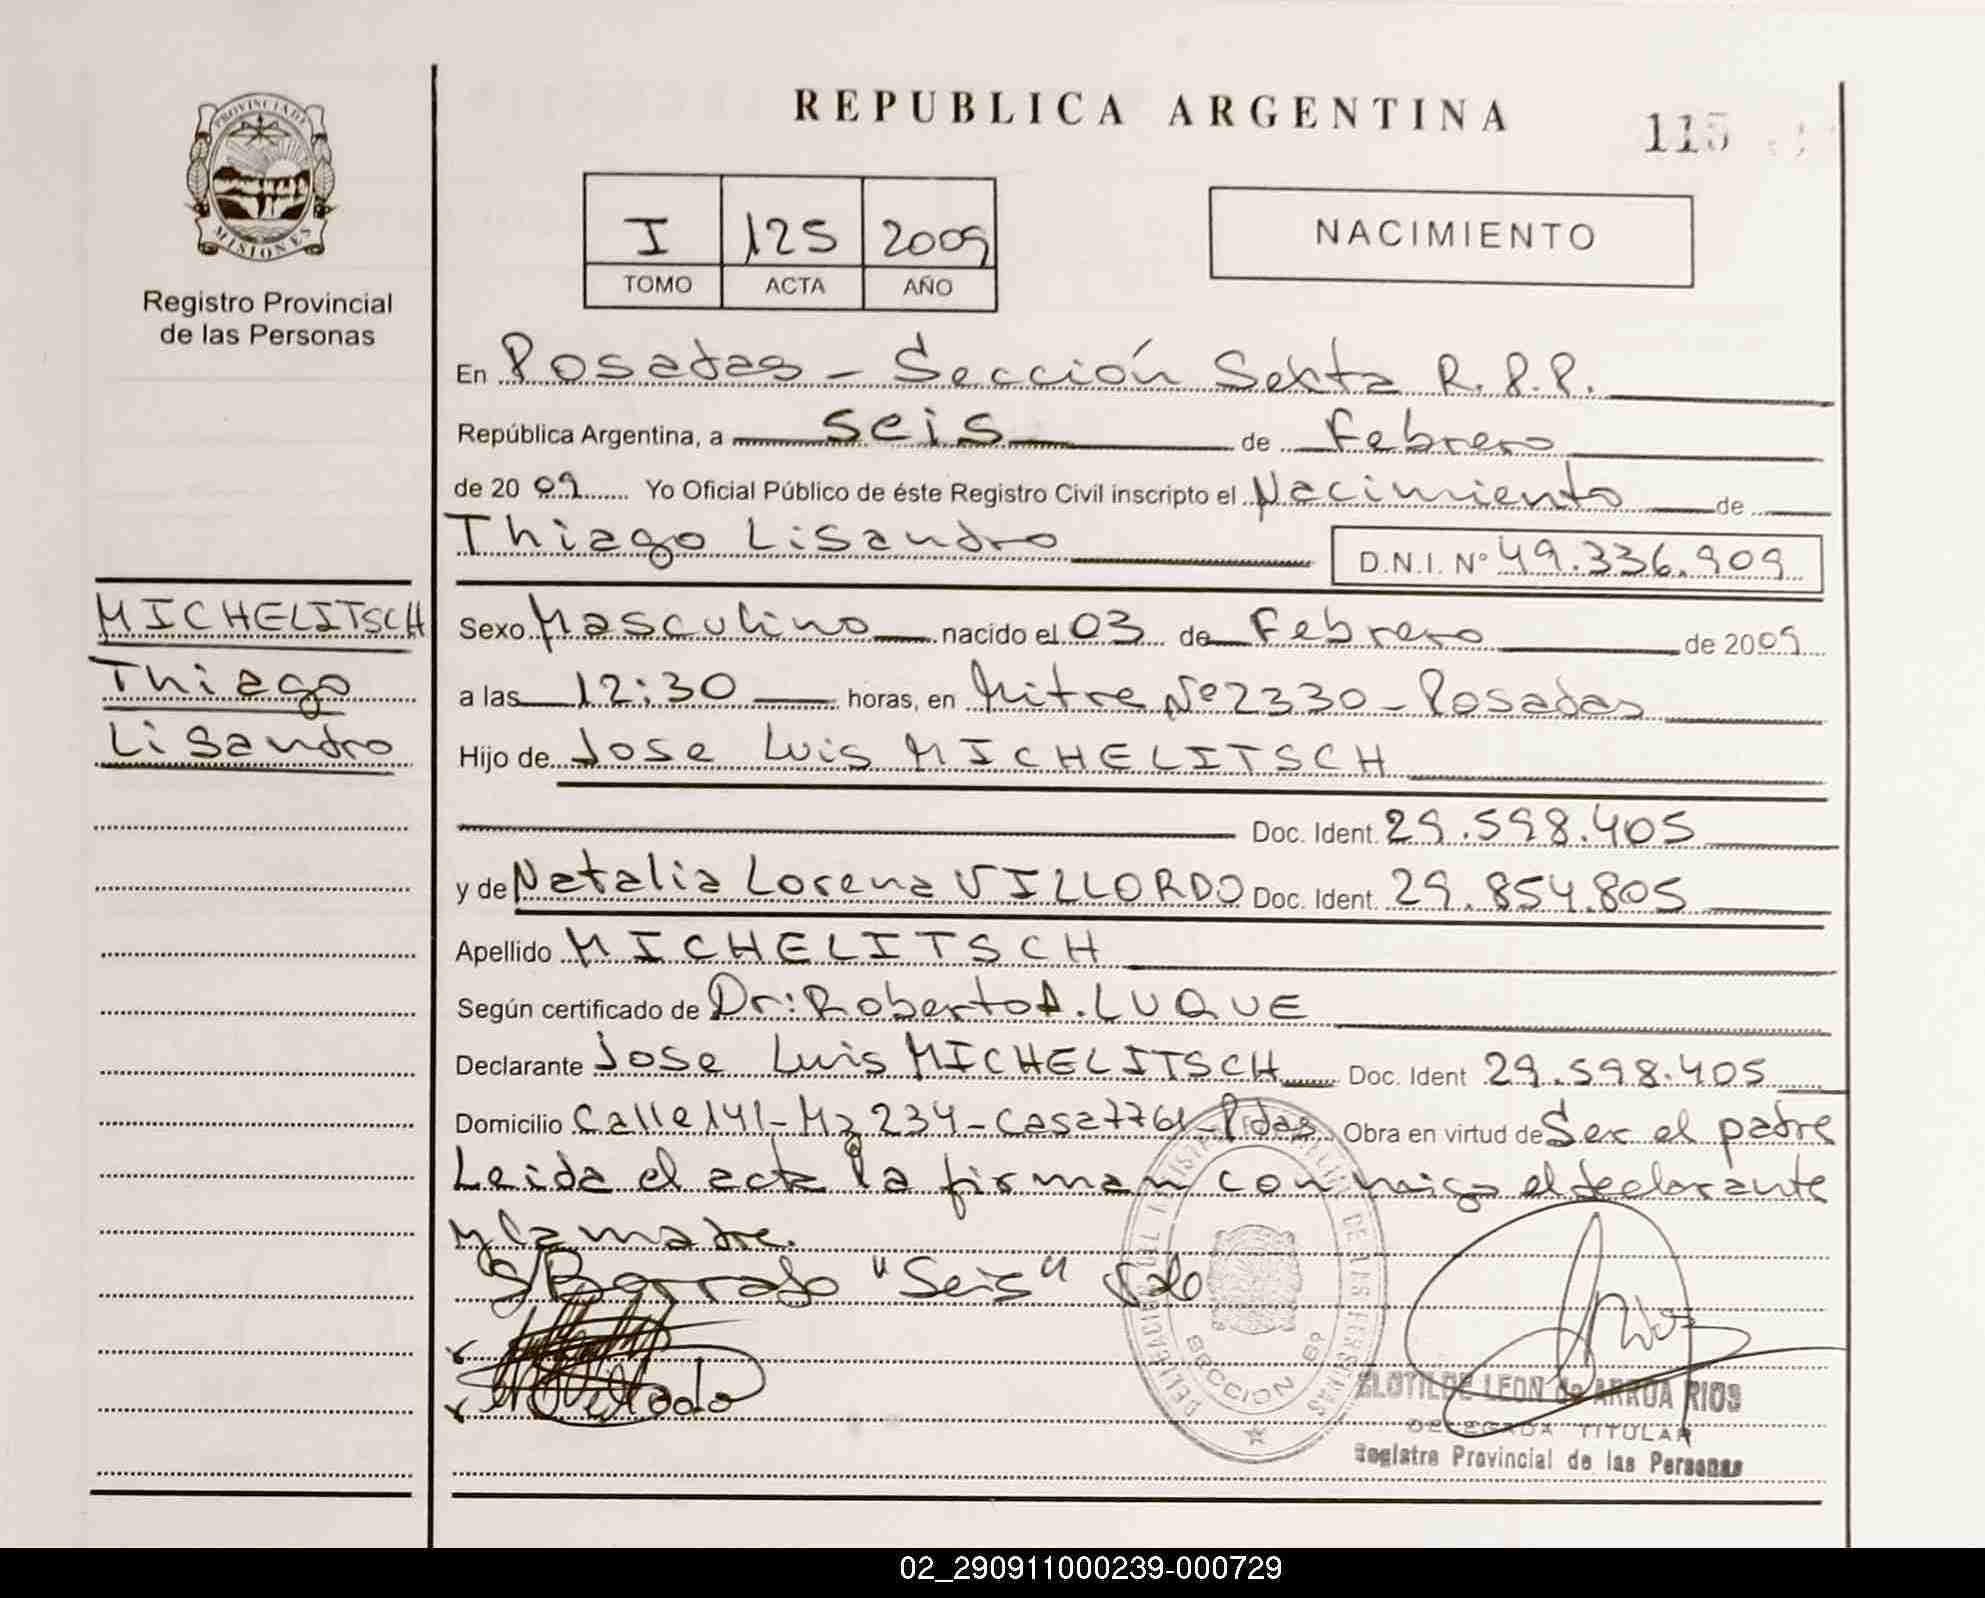 REPUBLICA ARGENTINA
115
PROVINCIA DE MISIONES
Registro Provincial
de las Personas
I 125 2009
TOMO ACTA AÑO
NACIMIENTO
En Posadas - Sección Sexta R.P.P.
República Argentina, a seis de Febrero
de 2009 Yo Oficial Público de éste Registro Civil inscripto el Nacimiento de
Thiago Lisandro D.N.I. Nº 49.336.909
MICHELITSCH
Thiago
Lisandro
Sexo Masculino nacido el 03 de Febrero de 2009
a las 12:30 horas, en Mitre Nº 2330 - Posadas
Hijo de Jose Luis MICHELITSCH
Doc. Ident. 29.598.405
y de Natalia Lorena VILLORDO Doc. Ident. 29.854.805
Apellido MICHELITSCH
Según certificado de Dr: Roberto A. LUQUE
Declarante Jose Luis MICHELITSCH Doc. Ident 29.598.405
Domicilio Calle 141 - Mz 234 - Casa 7761 - Pdas Obra en virtud de Ser el padre
Leida el acta la firman conmigo el declarante
y la madre.
S/Borrado "Seis" Vale
SECCION 6ª
CLOTILDE LEON de ARRUA RIOS
DELEGADA TITULAR
Registro Provincial de las Personas
02_290911000239-000729